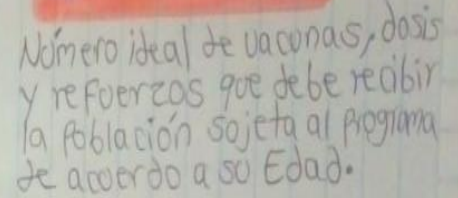 Número ideal de vacunas, dosis
y refuerzos que debe recibir
la Población sujeta al Programa
de acuerdo a su Edad.